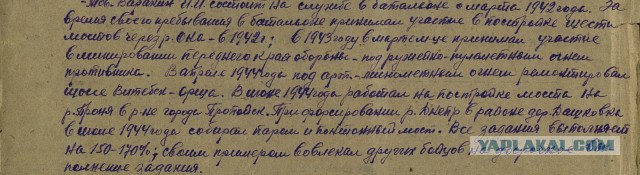 -Тов. Варакин И.И. состоит на службе в батальоне с марта 1942 года. За
время своего пребывания в батальоне принимал участие в постройке шести
мостов через р. Ока - в 1942 г; в 1943 году в марте м-це принимал участие
в минировании переднего края обороны - под ружейно-пулеметным огнем
противника. В апреле 1944 года под арт.-минометным огнем ремонтировал
шоссе Витебск-Орша. В июне 1944 года работал на постройке моста на
р. Проня в р-не города Пропойск. При форсировании р. Днепр в районе дер. Дашковка
в июне 1944 года собирал паром и понтонный мост. Все задания выполняет
на 150-170%; своим примером вовлекал других бойцов на
полнение задания.
YAPLAKAL.COM